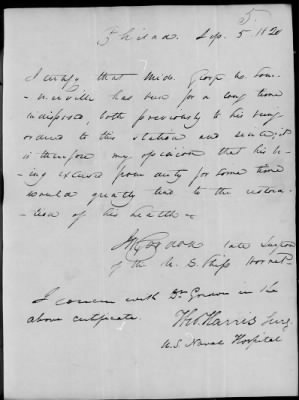 5.
Philad. Sep. 5 1820
I certify that Mid. George W. Som-
-merville has been for a long time
indisposed, both previously to his being
ordered to this station and since; it
is therefore my opinion that his be-
-ing excused from duty for some time
would greatly tend to the restora-
-tion of his health
late Surgeon
of the U. S. Ship Hornet
I concur with Dr. Gordon in the
above certificate.
Tho. Harris Surg.
U.S. Naval Hospital